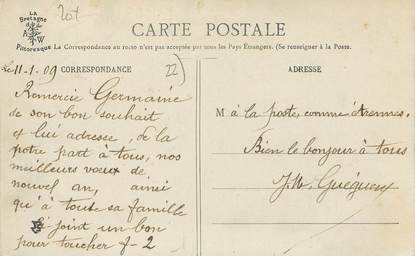 La
Bretagne
A W
Pittoresque
CARTE POSTALE
La Correspondance au recto n'est pas acceptée par tous les Pays Étrangers. (Se renseigner à la Poste.)
Le 11-1-09 CORRESPONDANCE
22
ADRESSE
Remercie Germaine
de son bon souhait
et lui adresse, de la
notre part à tous, nos
meilleurs vœux de
nouvel an, ainsi
qu'à toute sa famille
joint un bon
pour toucher f-2
M à la poste, comme étrennes.
Bien le bonjour à tous
J.M. Guéguen